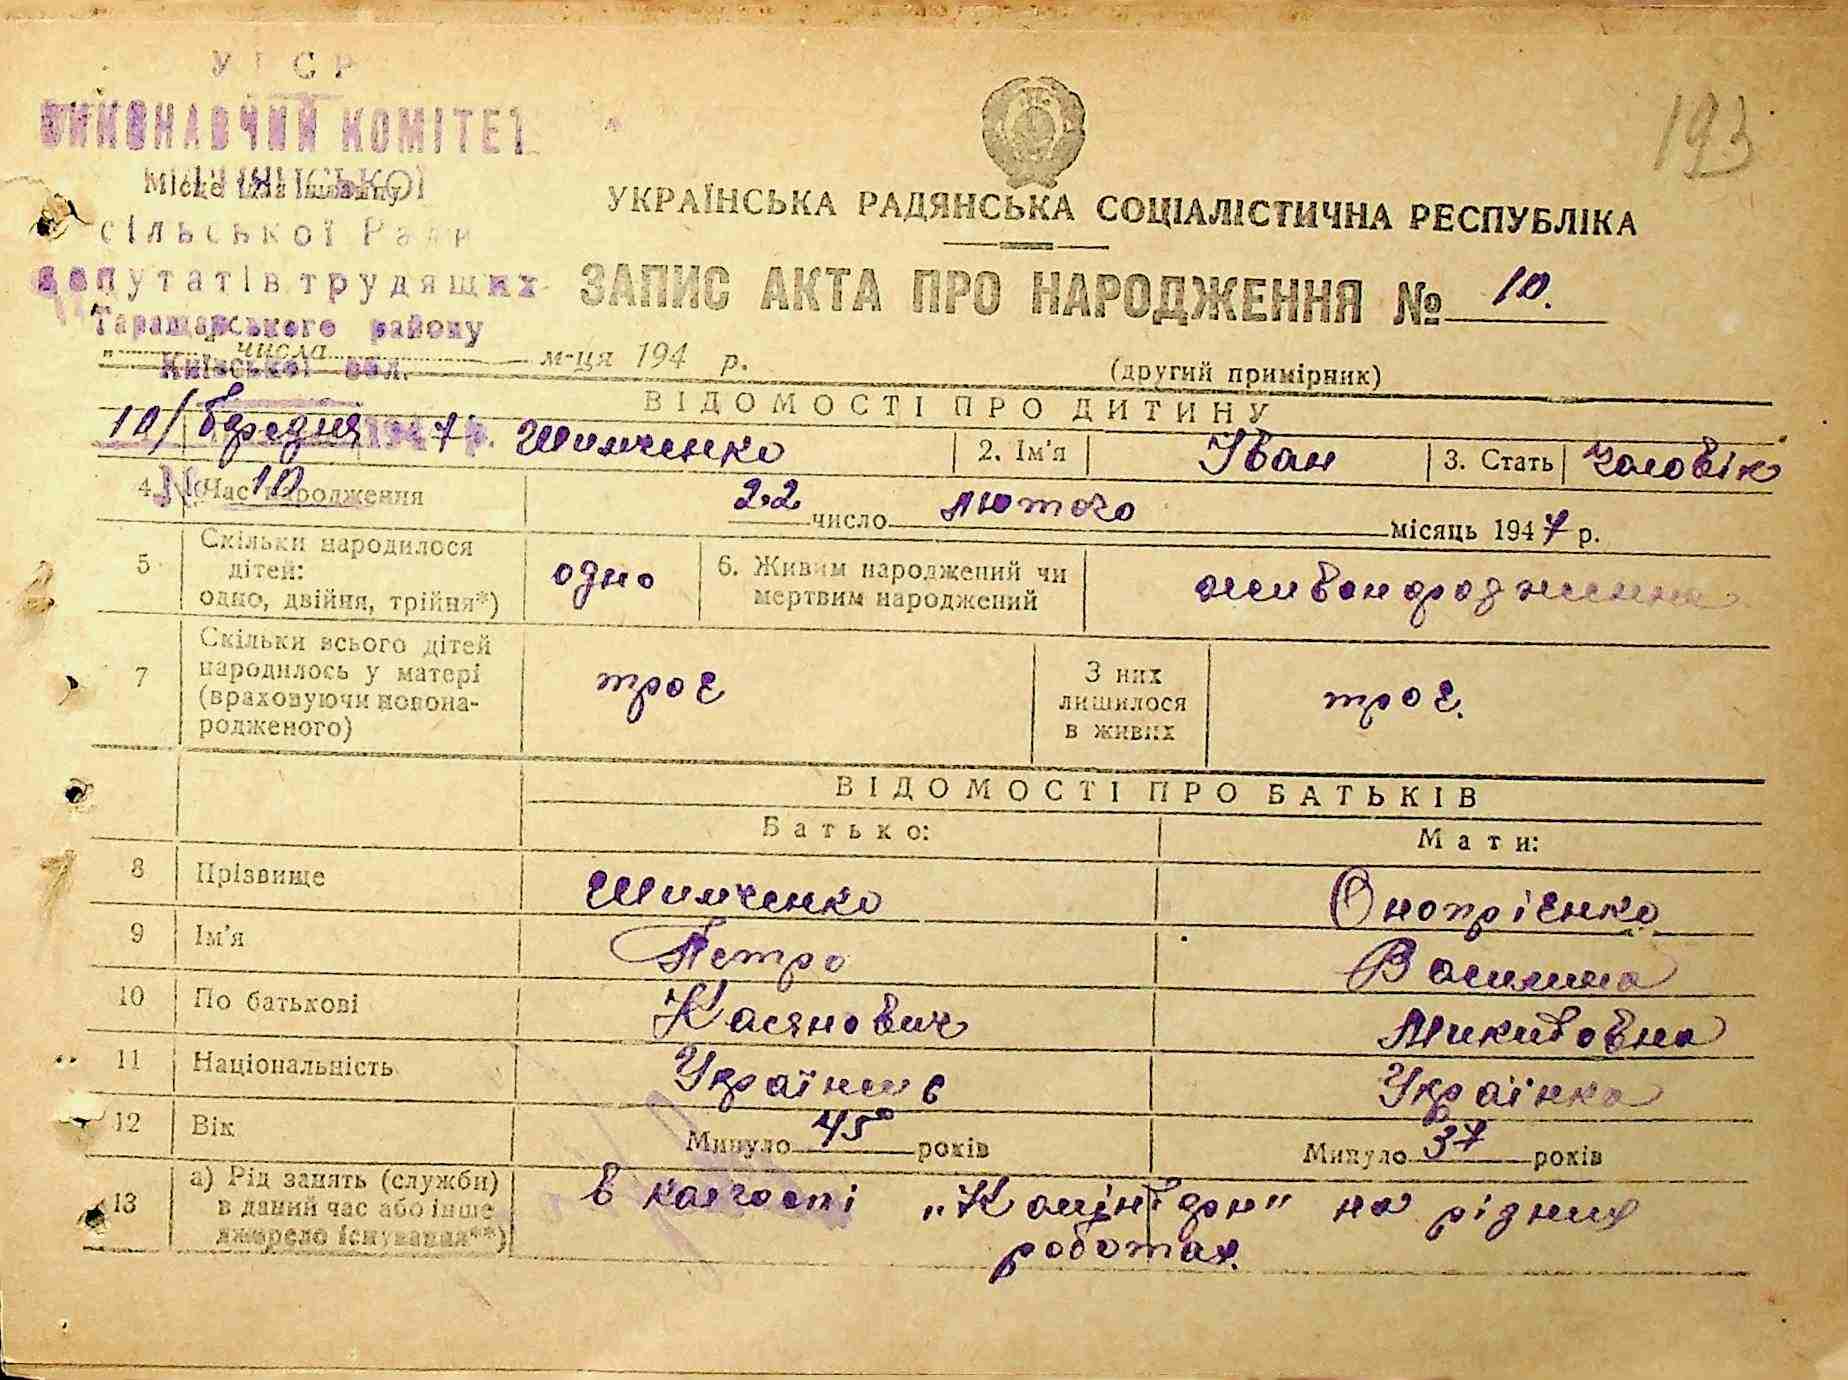 193
УРСР
ВИКОНАВЧИЙ КОМІТЕТ
Місце для штампу
сільської Ради
депутатів трудящих
Таращанського району
Київської обл.
УКРАЇНСЬКА РАДЯНСЬКА СОЦІАЛІСТИЧНА РЕСПУБЛІКА
ЗАПИС АКТА ПРО НАРОДЖЕННЯ № 10.
" числа м-ця 194 р.
(другий примірник)
ВІДОМОСТІ ПРО ДИТИНУ
10/ 1947 р. Шимченко 2. Ім'я Іван 3. Стать чоловік
№ 10
4 Час народження 22 число лютого місяць 1947 р.
5 Скільки народилося дітей: одно, двійня, трійня*) одно 6. Живим народжений чи мертвим народжений
7 Скільки всього дітей народилось у матері (враховуючи новонародженого) троє З них лишилося в живих троє.
ВІДОМОСТІ ПРО БАТЬКІВ
Батько: Мати:
8 Прізвище Шимченко Онопрієнко
9 Ім'я Петро Василина
10 По батькові Касянович Микитовна
11 Національність Українець Українка
12 Вік Минуло 45 років Минуло 37 років
13 а) Рід занять (служби) в даний час або інше джерело існування**) в колгоспі "Комінтерн" на різних
роботах.